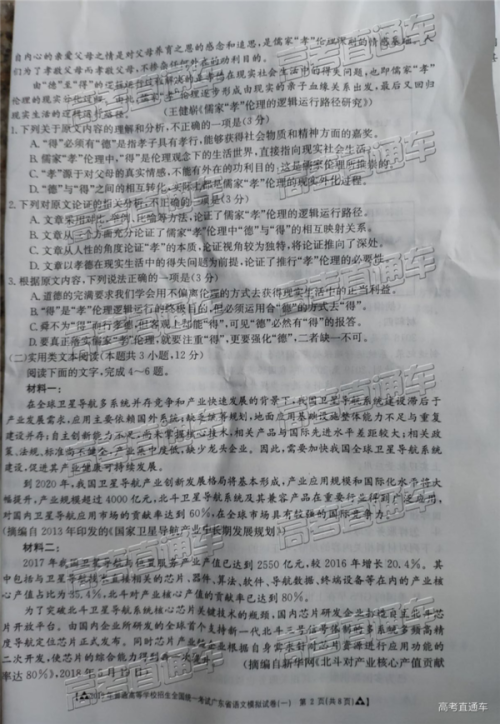 自内心的亲爱父母之情是对父母养育之恩的感念和追思,是儒家“孝”伦理
们为了孝敬父母而孝敬父母,不
由“德”至“得”的逻辑运行过程解决的是孝的在现实社会生活中的得失问题,也即儒家“孝”
伦理的现实外化过程。由此,儒家“孝”伦理逐步形成由现实的亲子血缘关系出发,最后又回归
现实生活的逻辑运行路径。
(王健崭《儒家“孝”伦理的逻辑运行路径研究》)
1.下列关于原文内容的理解和分析,不正确的一项是(3分)
A.“得”必须有“德”是指孝子具有孝行,能够获得社会物质和精神方面的嘉奖。
B.儒家“孝”伦理中,“得”是伦理观念下的生活世界,直接指向现实社会生活。
C.“孝”源于对父母的真实情感,不能有外在的功利目的,这是儒家“孝”伦理所推崇的。
D.“德”与“得”之间的相互转化,实际上都是儒家“孝”伦理的现实外化过程。
2.下列对原文论证的相关分析,不正确的一项是(3分)
A.文章采用对比、举例、比喻等方法,论证了儒家“孝”伦理的逻辑运行路径。
B.文章从三个方面充分论证了儒家“孝”伦理中“德”与“得”的相互映射关系。
C.文章从人性的角度论证“孝”的本质,论证视角较为独特,将论证推向了深处。
D.文章以孝德在现实生活中的得失问题为前提,论证了推行“孝”伦理的必要性。
3.根据原文内容,下列说法正确的一项是(3分)
A.道德的完满要求我们学会用不偏离伦理的方式去获得现实生活中的正当利益。
B.“得”是“孝”伦理逻辑运行的终极目的,但必须运用合“德”的方式去“得”。
C.舜不为“得”而行孝德,但客观上却能“得”,可见“德”必然有“得”的报答。
D.要真正落实儒家“孝”伦理,就要注重“得”,更要强化“德”,二者缺一不可。
(二)实用类文本阅读(本题共3小题,12分)
阅读下面的文字,完成4～6题。
材料一:
在全球卫星导航多系统并存竞争和产业快速发展的背景下,我国卫星导航系统建设滞后于
产业发展需求,应用主要依赖国外系统;缺乏统筹规划,地面应用基础设施整体能力不足与重复
建设并存;自主创新能力不足,尚未掌握核心技术,相关产品与国际先进水平差距较大;相关政
策、法规、标准尚不健全,产业集中度低,缺少龙头企业。因此,需要加快我国全球卫星导航系统
建设,促进其产业健康可持续发展。
到2020年,我国卫星导航产业创新发展格局将基本形成,产业应用规模和国际化水平将大
幅提升,产业规模超过4000亿元,北斗卫星导航系统及其兼容产品在重要行业得到广泛应用,
对国内卫星导航应用市场的贡献率达到60%,在全球市场具有较强的国际竞争力。
(摘编自2013年印发的《国家卫星导航产业中长期发展规划》)
材料二:
2017年我国卫星导航与位置服务产业产值已达到2550亿元,较2016年增长20.4%。其
中包括与卫星导航技术直接相关的芯片、器件、算法、软件、导航数据、终端设备等在内的产业核
心产值占比为35.4%,北斗对产业核心产值的贡献率已达到80%。
为了突破北斗卫星导航系统核心芯片关键技术的瓶颈,国内芯片研发企业打造自主北斗芯
片开放平台。由国内企业所研发的全球首个支持新一代北斗三号信号体制的多系统多频高精
度导航定位芯片正式发布。同时芯片产业
发,使芯片的综合能力得到
(摘编自新华网《北斗对产业核心产值贡献
率达80%》,2018年5月15日)
2019年普通高等学校招生全国统一考试广东省语文模拟试卷(一) 第2页(共8页)
高考直通车